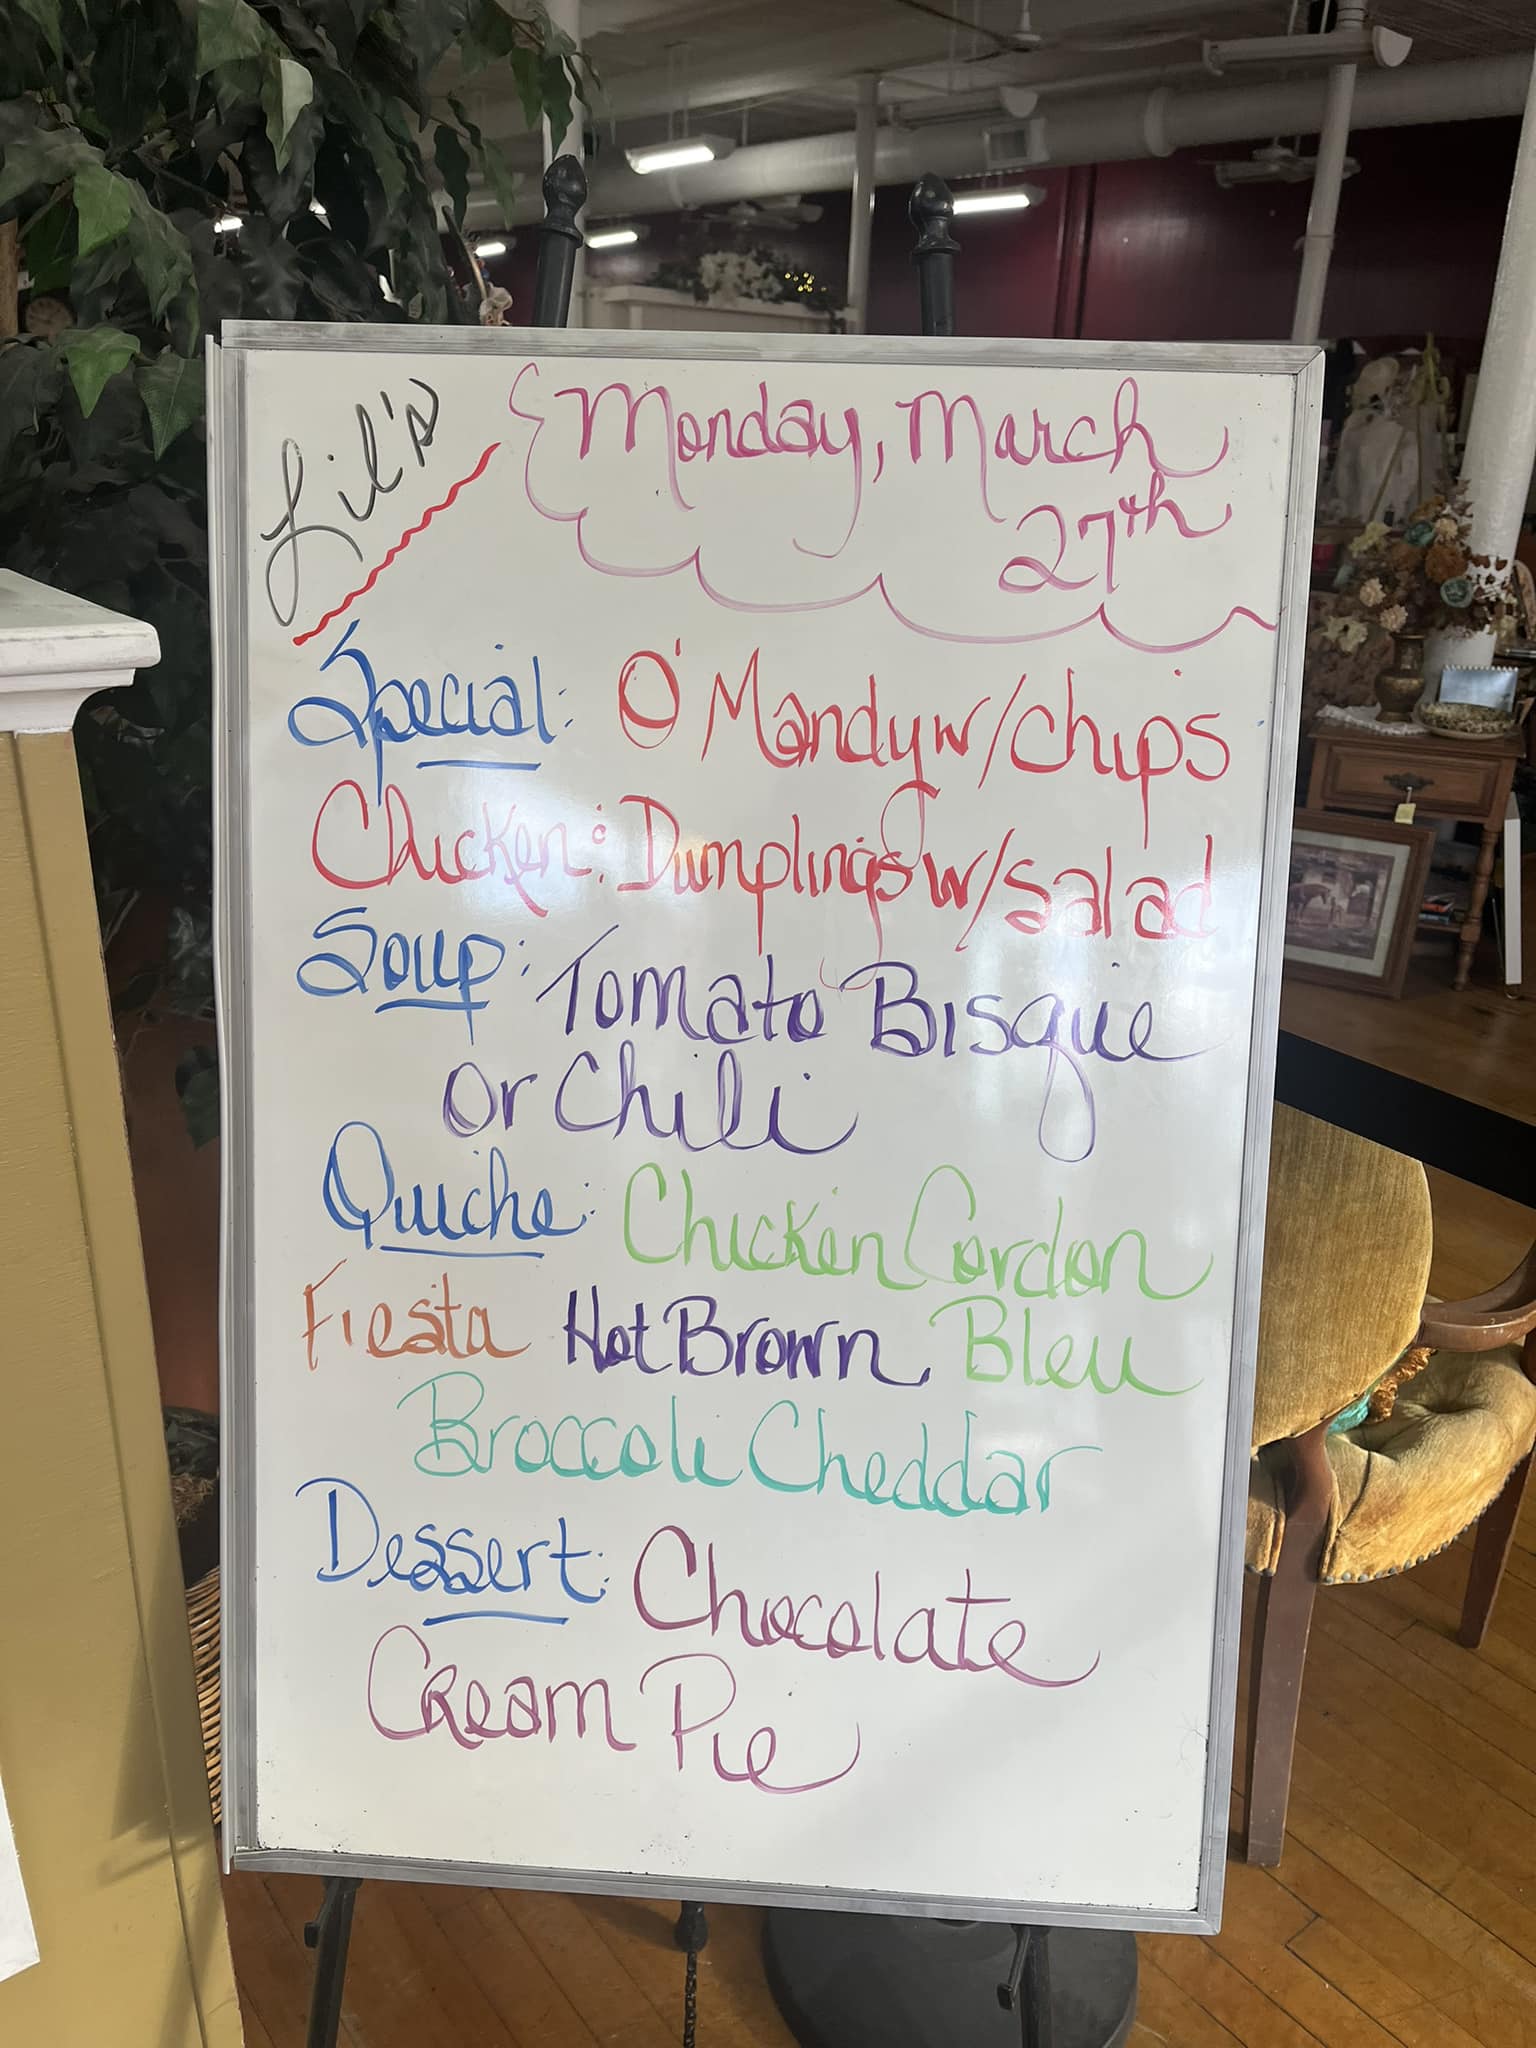 Lil's
Monday, March
27th
Special: O'Mandy w/chips
Chicken: Dumplings w/salad
Soup: Tomato Bisque
or Chili
Quiche: Chicken Cordon
Fiesta Hot Brown Bleu
Broccoli Cheddar
Dessert: Chocolate
Cream Pie